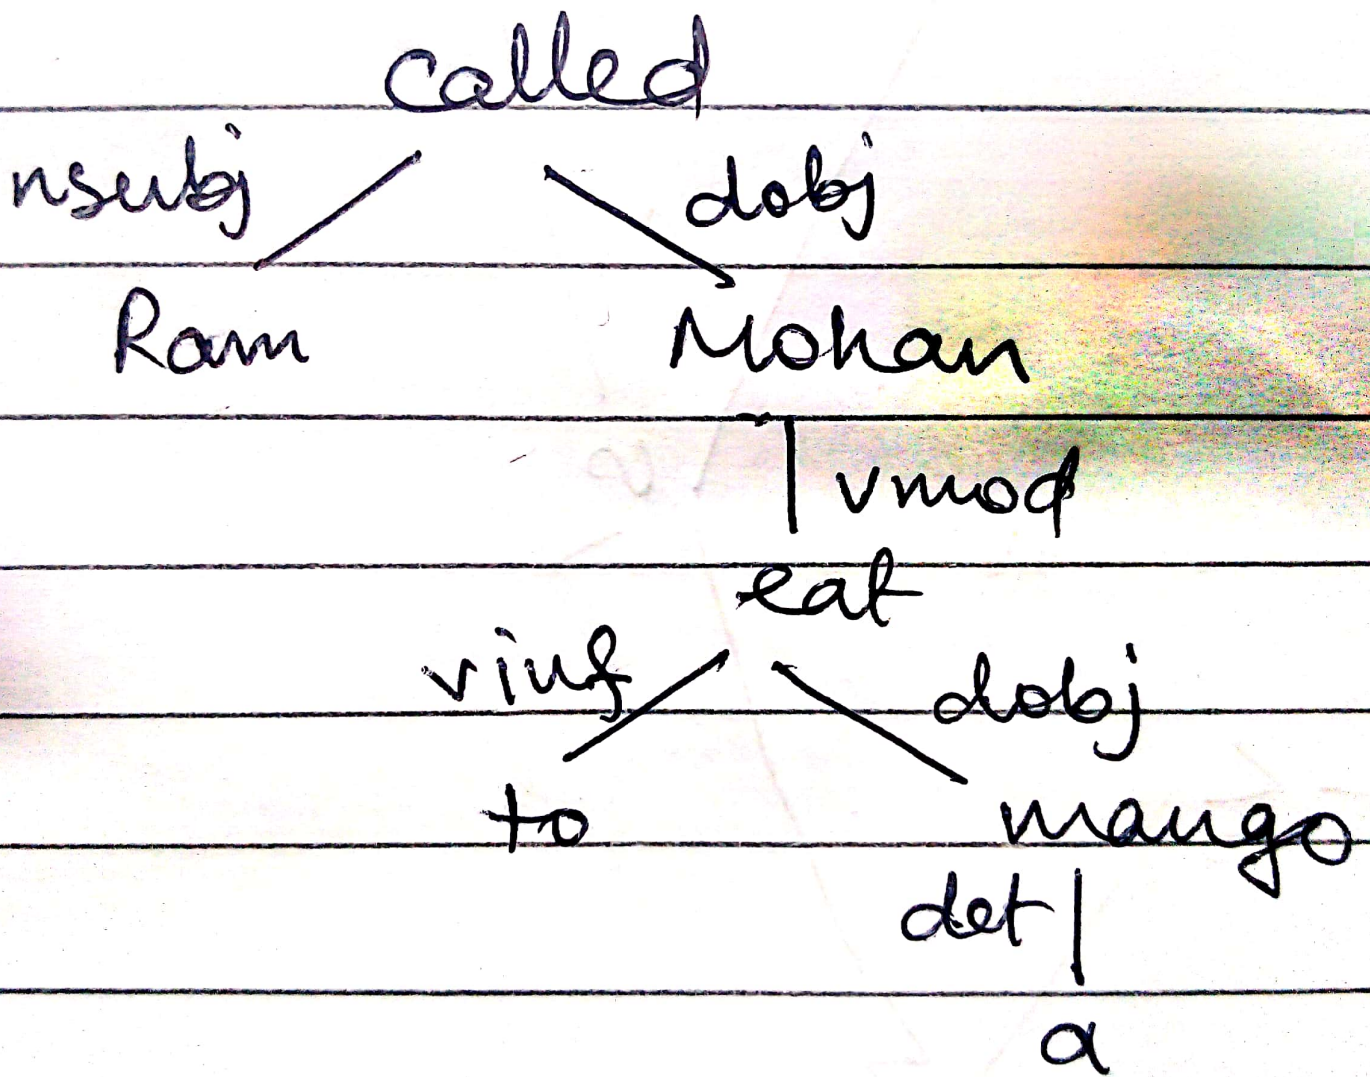 called
nsubj dobj
Ram Mohan
vmod
eat
vinf dobj
to mango
det
a